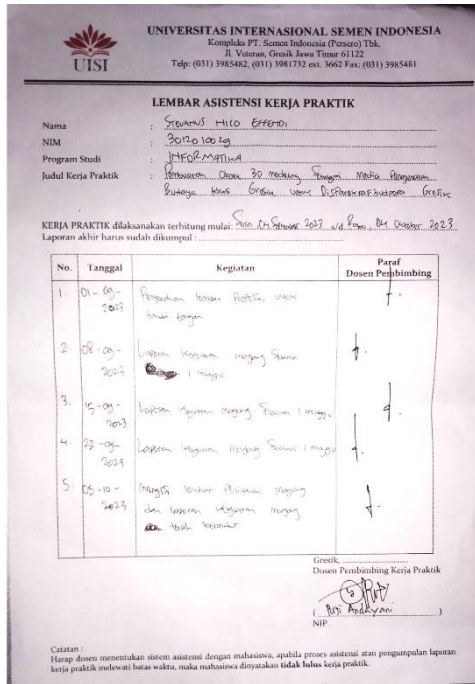 UISI
UNIVERSITAS INTERNASIONAL SEMEN INDONESIA
Kompleks PT. Semen Indonesia (Persero) Tbk.
Jl. Veteran, Gresik Jawa Timur 61122
Telp: (031) 3985482, (031) 3981732 ext. 3662 Fax: (031) 3985481
LEMBAR ASISTENSI KERJA PRAKTIK
Nama : STEVANUS HICO EFFENDI
NIM : 3012010029
Program Studi : INFORMATIKA
Judul Kerja Praktik : Pembuatan 3D Sebagai Media Pengenalan
Budaya Khas Gresik untuk Disparekrafbudpora Gresik
KERJA PRAKTIK dilaksanakan terhitung mulai: 04 September 2023 s/d. 04 Oktober 2023
Laporan akhir harus sudah dikumpul :
No. Tanggal Kegiatan Paraf Dosen Pembimbing
1. 01-09-2023 lembar untuk
tanda tangan
2. 08-09-2023 Laporan kegiatan magang selama
1 minggu
3. 15-09-2023 Laporan kegiatan magang selama 1 minggu
4. 22-09-2023 Laporan kegiatan magang selama 1 minggu
5. 05-10-2023 lembar magang
dan laporan kegiatan magang
Gresik,
Dosen Pembimbing Kerja Praktik
( Andayani )
NIP.
Catatan :
Harap dosen menentukan sistem asistensi dengan mahasiswa, apabila proses asistensi atau pengumpulan laporan
kerja praktik melewati batas waktu, maka mahasiswa dinyatakan tidak lulus kerja praktik.